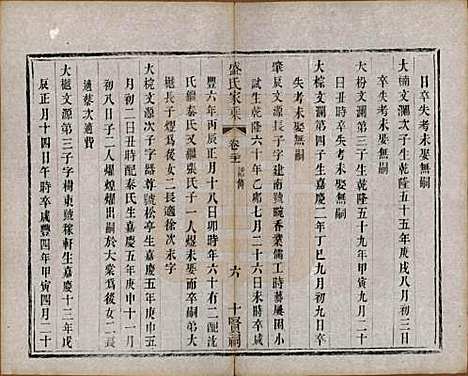 日卒失考未娶無嗣
大楠文瀾第三子生乾隆五十五年庚戌八月初三日
卒失考未娶無嗣
大枌文瀾第五子生乾隆五十九年甲寅九月二十
日丑時卒失考未娶無嗣
大棕文瀾第四子生嘉慶二年丁巳九月初九日
失考未娶無嗣
肇晟文源長子字建南號畹香業儒工時藝屢困小
試生乾隆六十年乙卯七月二十六日未時卒咸
盛氏家乘
卷三
六
十賢祠
豐六年丙辰正月十八日卯時年六十有二配沈
氏繼秦氏又繼張氏子一人煜未娶而卒嗣弟大
樾長子燈為後女二長適徐次未字
大椀文源第次子字 號松亭生嘉慶五年庚申十一月
初二日丑時配秦氏生嘉慶五年庚申八月
初八日子二人燿煌燿出嗣於大棠為後女二長
適蔡次適費
大樾文源第三子字樹東號稼軒生嘉慶十三年戊
辰正月十四日午時卒咸豐四年甲寅四月二十